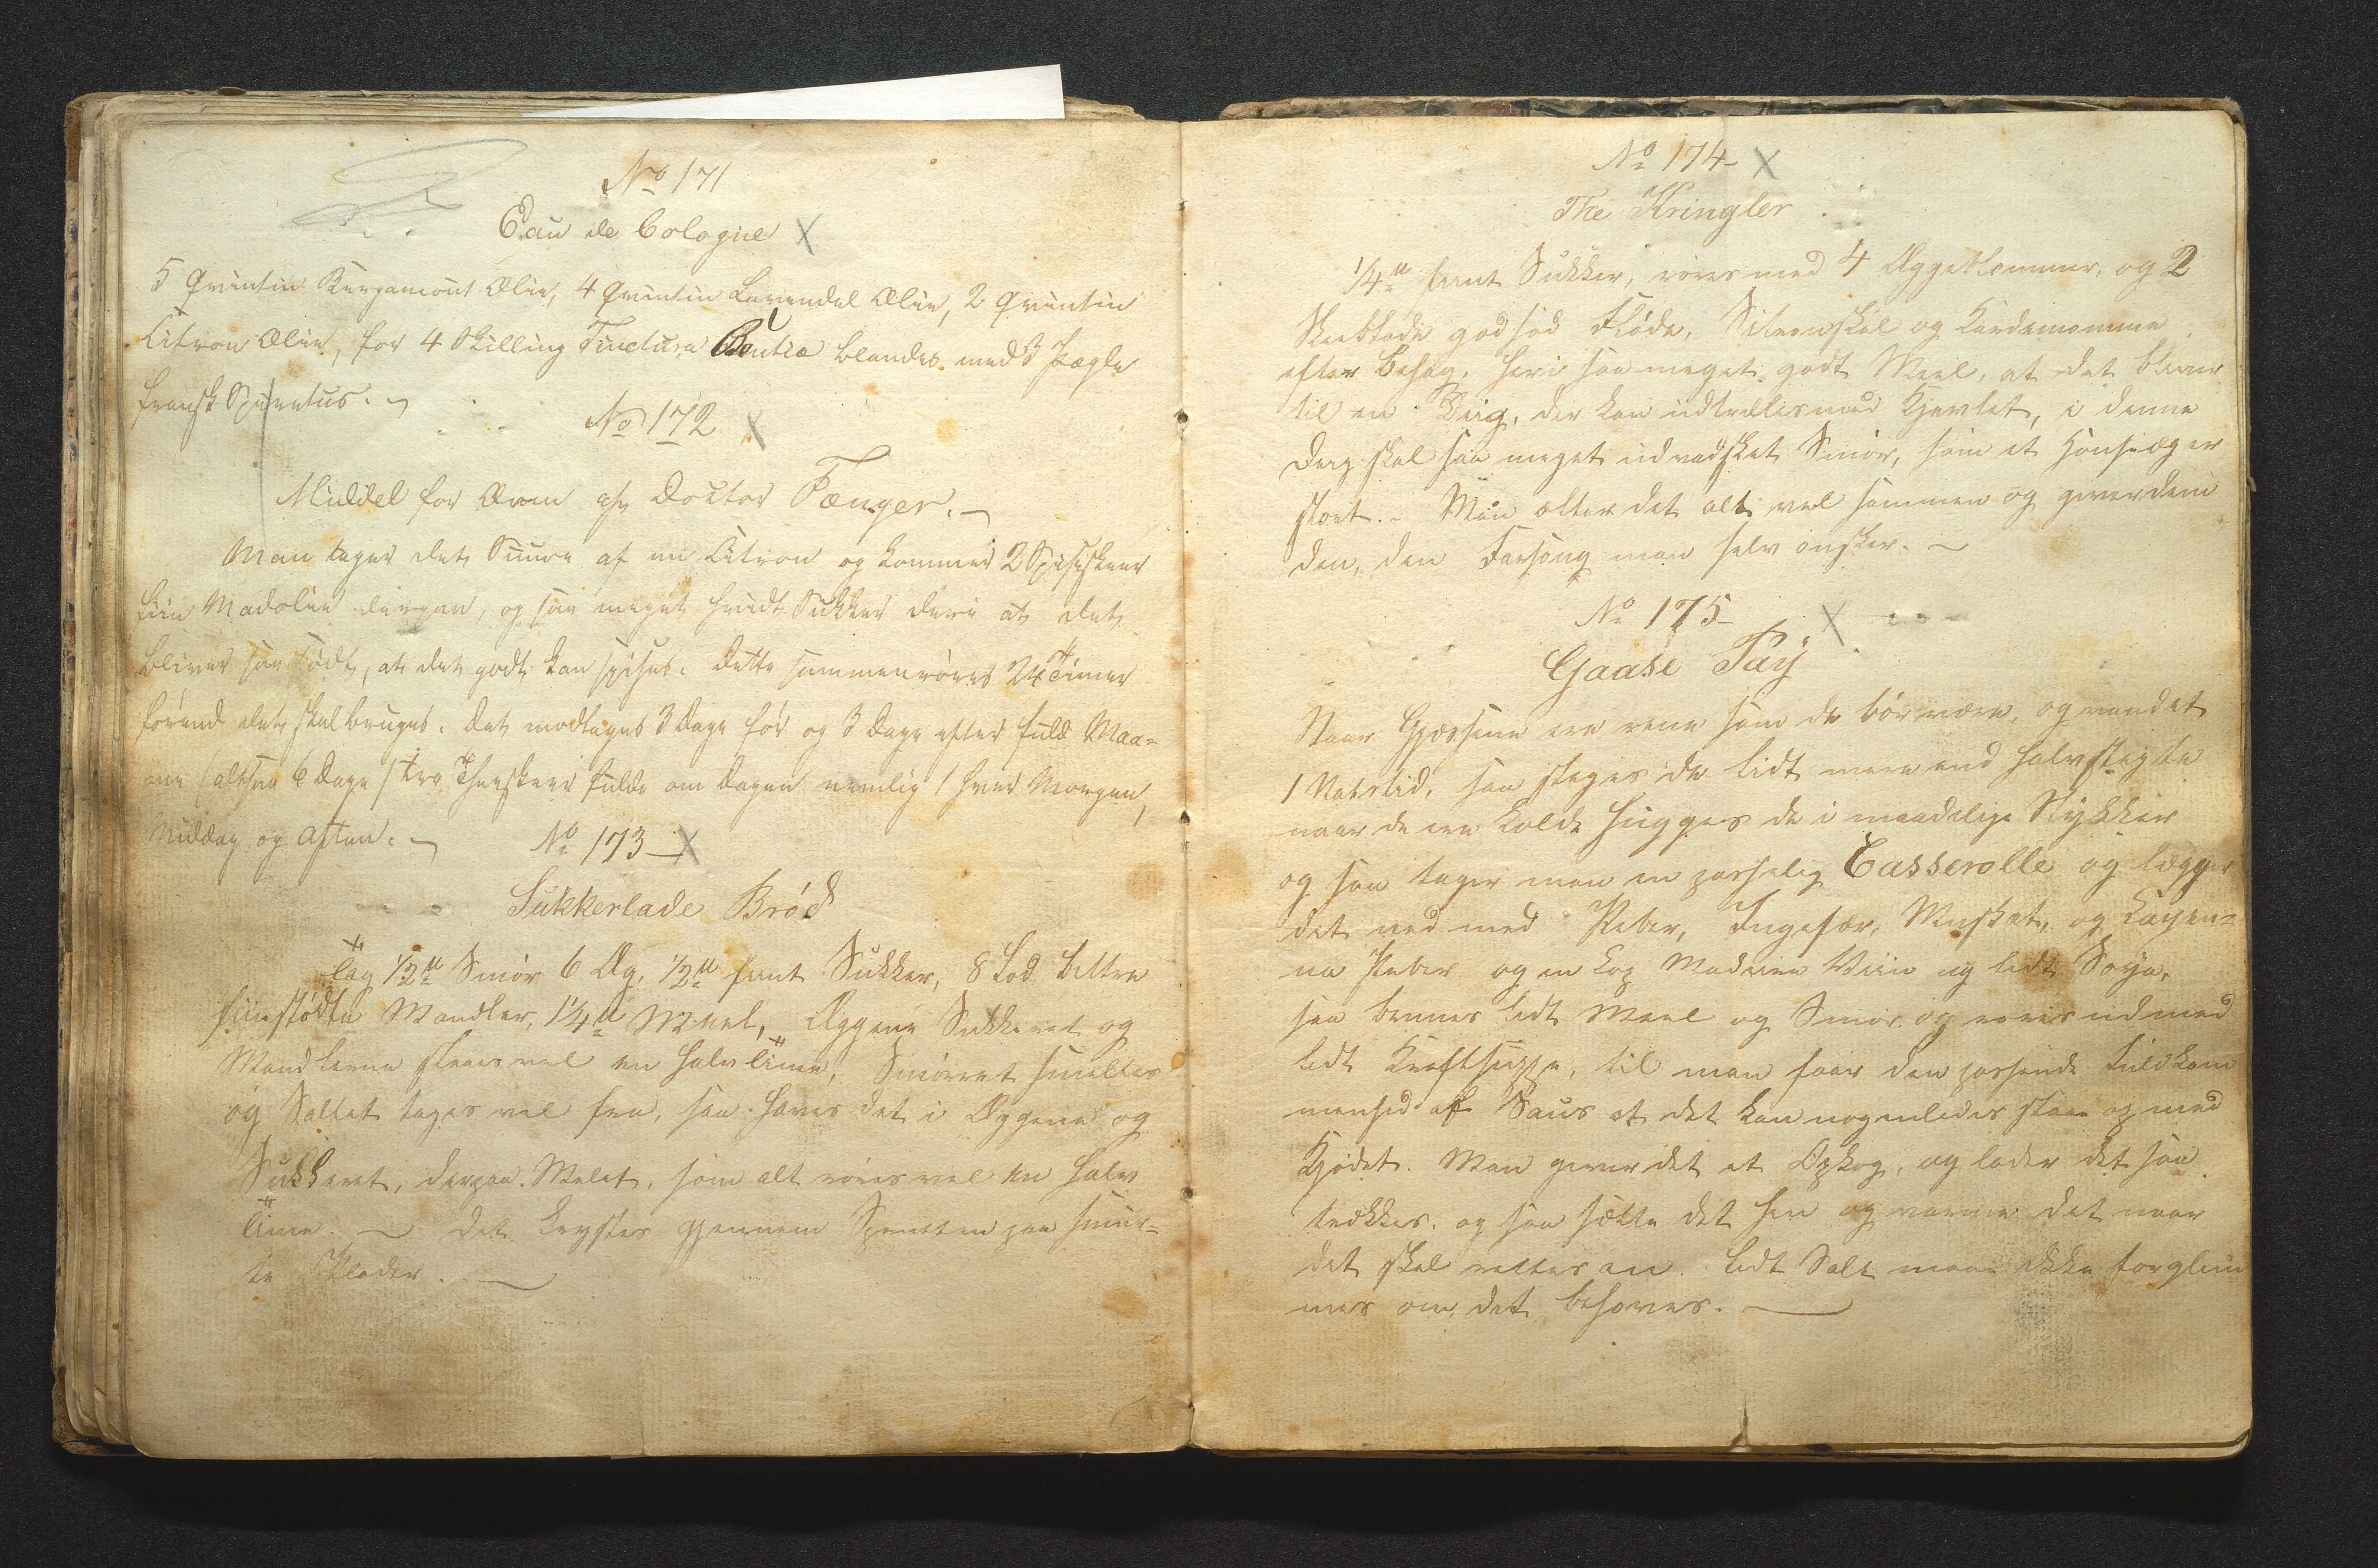 No 171
Eau de Cologne
5 Qvintin Bergamout Olie, 4 Qvintin Lavendel Olie, 2 Qvintin
Citron Olie, for 4 Skilling Tinctura blandes med 3 Pægle
fransk Spiritus.
No 172
Middel for Orm af Doctor Fænger.
Man tager det Suure af en Citron og kommer 2 Spiseskeer
fiin Madolie derpaa, og saa meget hvidt Sukker deri at det
bliver saa södt, at det godt kan spises. Dette sammenröres 24 Timer
förend det skal bruges. Det modtages 3 Dage för og 3 Dage efter fuld Maa=
ne (altsaa 6 Dage) tre Theskeer fulde om Dagen nemlig 1 hver Morgen,
Middag og Aften.
No 173
Sukkerlade Bród
Tag 1/2 ℔ Smör 6 Æg, 1/2 ℔ stönt Sukker, 8 Lod bittre
fiinstödte Mandler, 1 1/4 ℔ Meel, Æggene Sukkeret og
Mandlerne röres vel en halv Time, Smörret smeltes
og Saltet tages vel fra, saa haves det i Æggene og
Sukkeret, derpaa Melet, som alt röres vel en halv
Time. Det krystes gjennem Spröiten paa smur=
te Plader.
No 174
The Kringler
1/4 ℔ stönt Sukker, röres med 4 Æggeblommer, og 2
Skeeblade god söd Flöde, Sitronskal og Kardemomme
efter Behag, heri saa meget godt Meel, at det bliver
til en Deig, der kan udtrilles med Kjevlet, i denne
Deig skal saa meget udvadsket Smör, som et Hönseæg er
stort. Man ælter det alt vel sammen og giver dem
den, den Façong man selv önsker.
No 175
Gaase Páÿ
Naar Gjæssene ere rene som de bör være, og vandet
1 Natstid, saa steges de lidt mere end halvstegte
naar de ere kolde hugges de i maadelige Stykker
og saa tager man en passelig Casserolle og lægger
det ned med Peber, Ingefær, Muskat, og Kayen=
ne Peber og en Kop Madeira Viin og lidt Soya,
saa brunes lidt Meel og Smör og röres ud med
lidt Kraftsuppe, til man faar den passende Fuldkom
menhed af Saus at det kan nogenledes staae op med
Kjödet. Man giver det et Opkog, og lader det saa
trækkes, og saa sætte det hen og varme det naar
det skal rettes an. Lidt Salt maae ikke forglem
mes om det behöves.